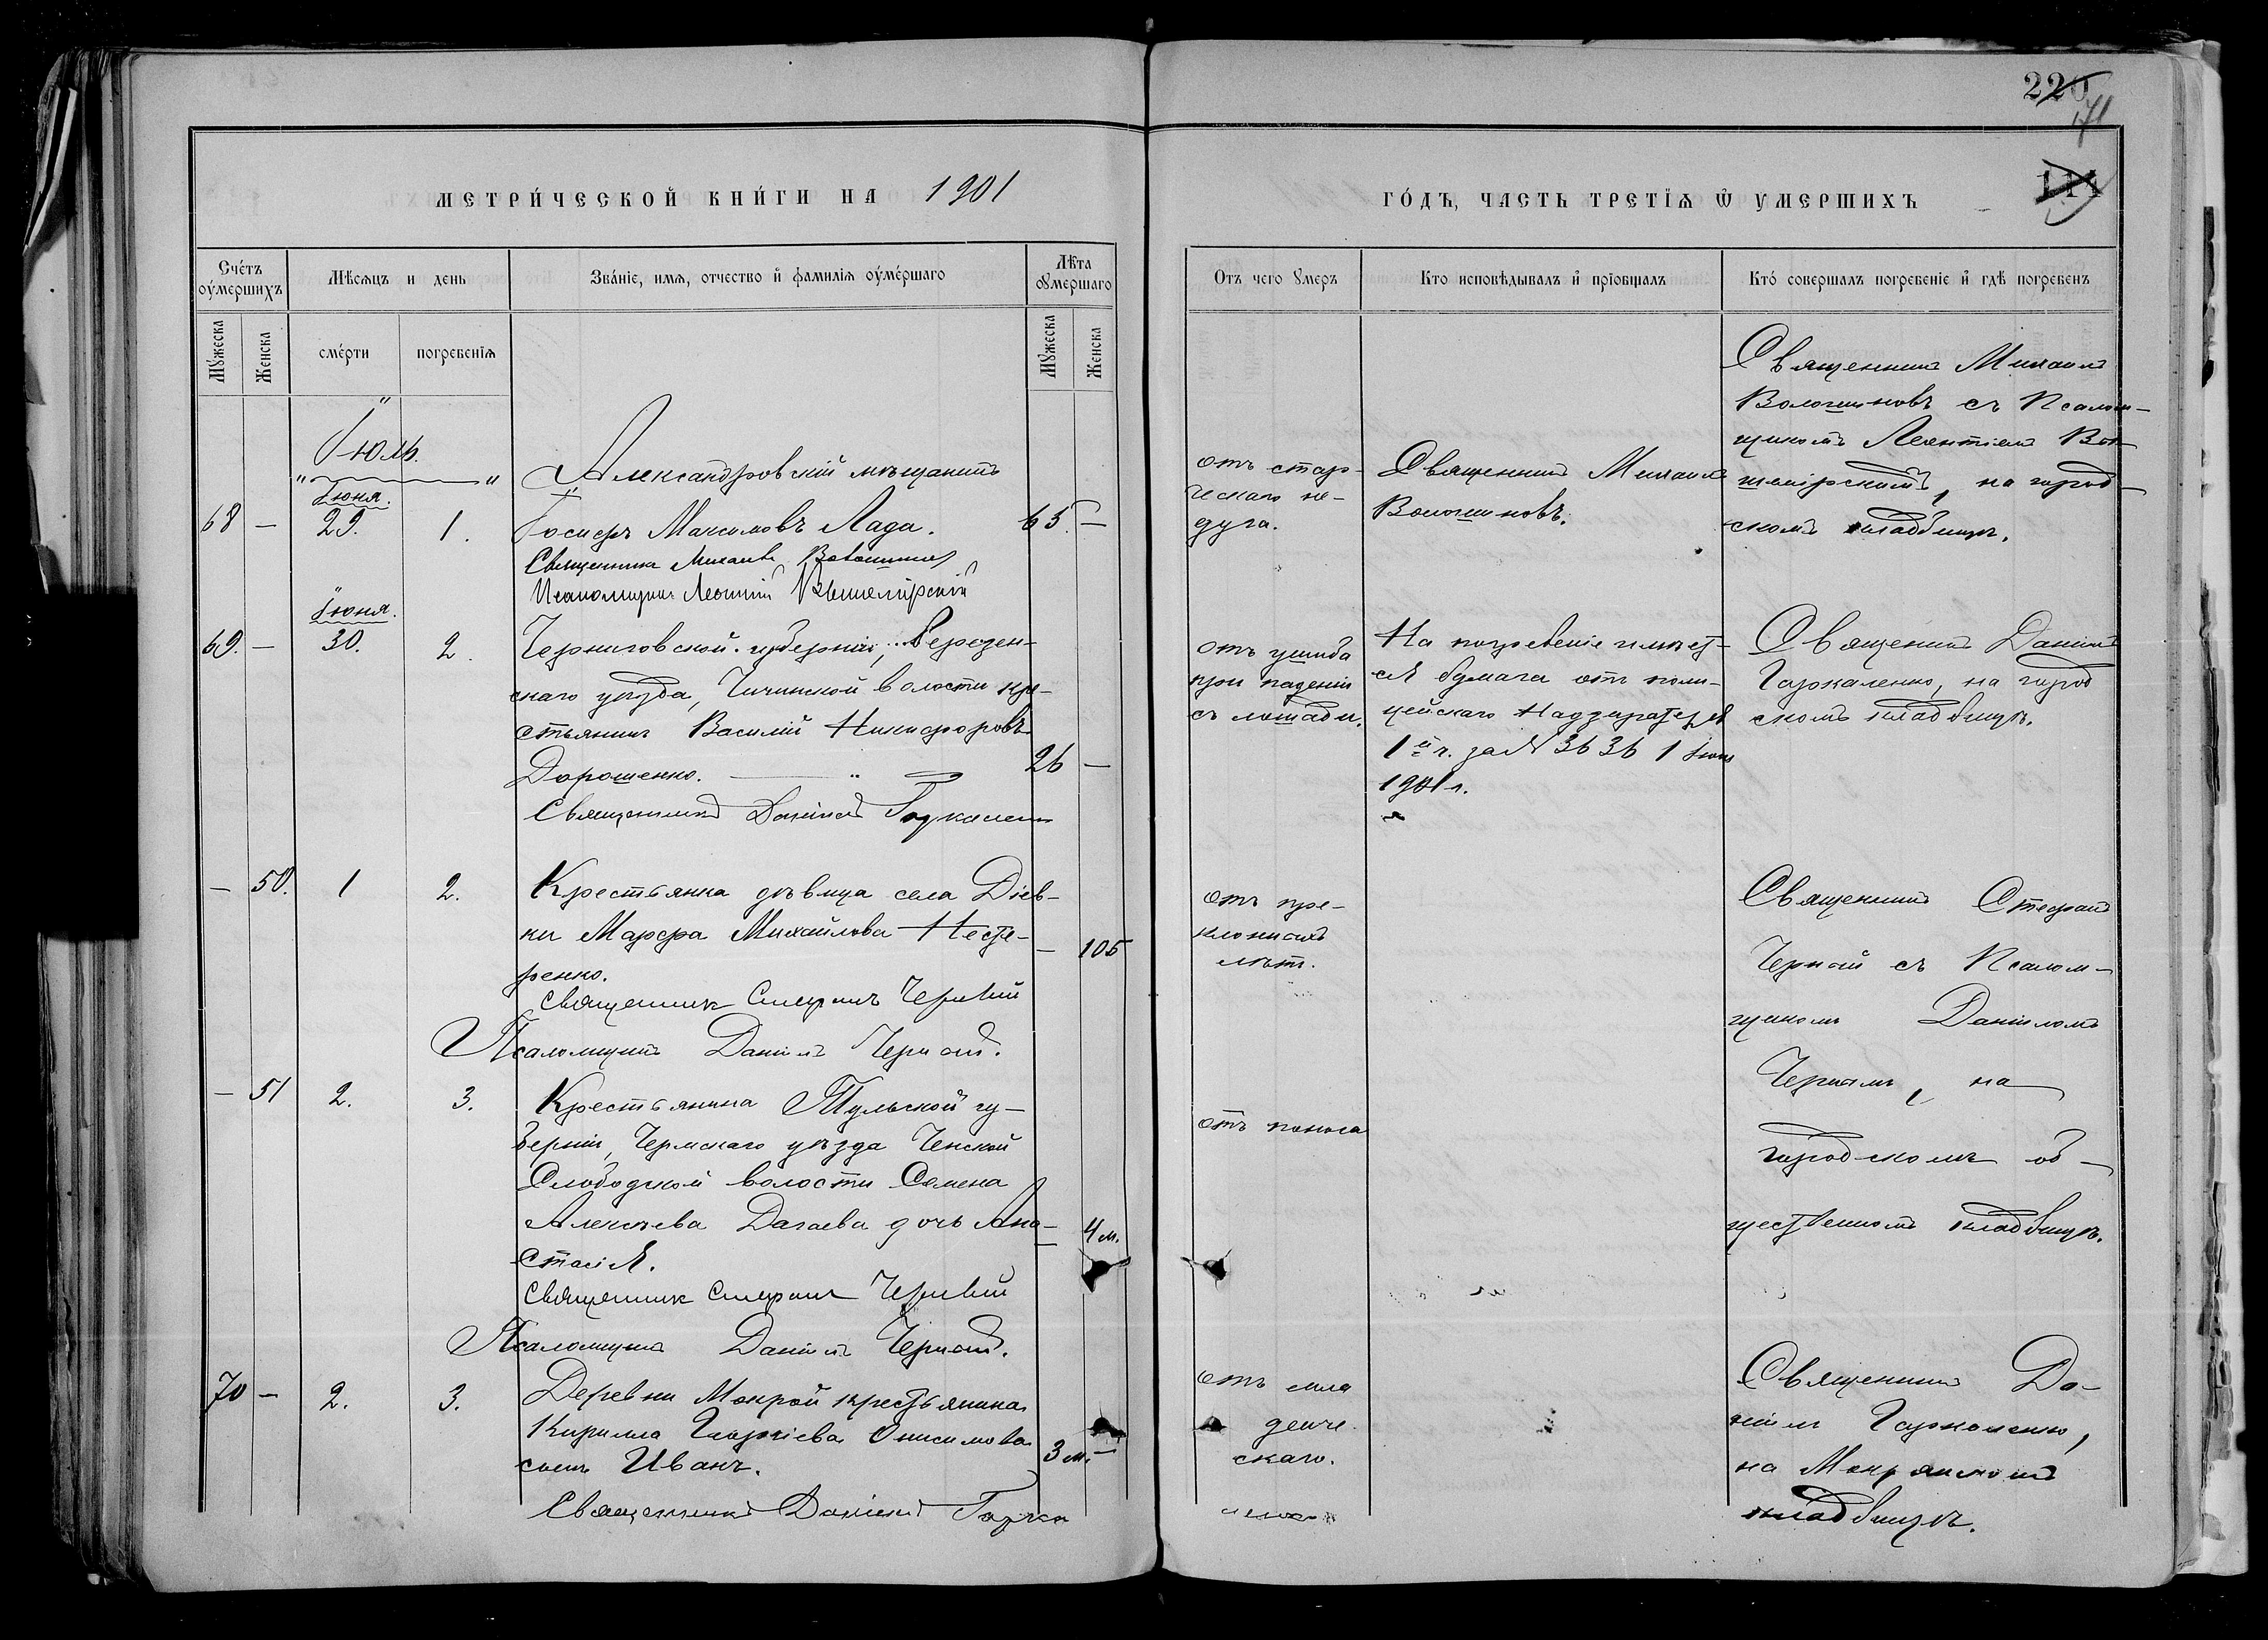 220
71
МЕТРИ́ЧЕСКОЙ КНИ́ГИ НА 1901
ГО́ДЪ, ЧАСТЬ ТРЕТІѦ Ѿ УМЕРШИХЪ
Сче́тъ оумершихъ
Мѣсяцъ и день
Зва́ніе, имя, отчество и фамилія оуме́ршаго
Лѣта оумершаго
Мужеска
Женска
сме́рти
погребенія
Мужеска
Женска
Отъ чего умеръ
Кто исповѣдывалъ и пріобщалъ
Кто́ совершалъ погребеніе и гдѣ погребенъ
Іюль.
68 — Іюня. 29. 1.
Александровскій мѣщанинъ
Іосифъ Максимовъ Лада.
65. —
Священникъ Михаилъ Волошиновъ
Псаломщикъ Леонтій
отъ стар-
ческаго не-
дуга.
Священникъ Михаилъ
Волошиновъ.
Священникъ Михаилъ
Волошиновъ съ Псалом-
щикомъ Леонтіемъ
на город-
скомъ кладбищѣ.
69. — Іюня. 30. 2.
Черниговской губерніи,
скаго уѣзда, волости кре-
стьянинъ Василій Никифоровъ
Дорошенко.
26 —
Священникъ Даніилъ Гаркаленко
отъ ушиба
при паденіи
съ лошади.
На погребеніе имѣет-
ся бумага отъ поли-
цейскаго Надзирателя
1й ч. за № 3636 1 Іюля
1901 г.
Священникъ Даніилъ
Гаркаленко, на город
скомъ кладбищѣ.
— 50. 1 2.
Крестьянка дѣвица села Діев-
ки Марфа Михайлова Несте-
ренко.
— 105
Священникъ Стефанъ Черный
Псаломщикъ Даніилъ Черный.
отъ пре-
клонныхъ
лѣтъ.
Священникъ Стефанъ
Черный съ Псалом-
щикомъ Даніиломъ
Чернымъ, на
городскомъ об-
щественномъ кладбищѣ.
— 51 2. 3.
Крестьянина Тульской гу-
берніи, уѣзда
Слободской волости Семена
Алексѣева Дагаева дочь Ана-
стасія.
— 4 м.
Священникъ Стефанъ Черный
Псаломщикъ Даніилъ Черный.
отъ поноса
70 — 2. 3.
Деревни Мокрой крестьянина
Кирилла Георгіева Онисимова
сынъ Иванъ.
3 м. —
Священникъ Даніилъ Гарка
отъ мла
денче
скаго.
Священникъ Да-
ніилъ Гаркаленко,
на Мокрянскомъ
кладбищѣ.